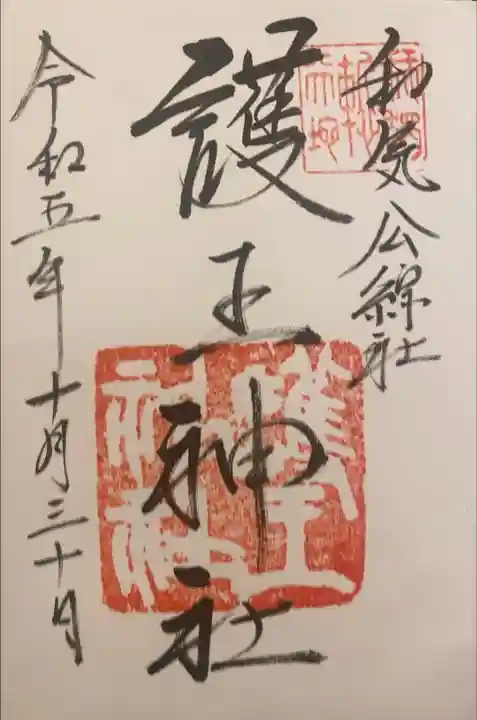 和気公綜社
護王神社
護王
神社
令和五年十月三十日